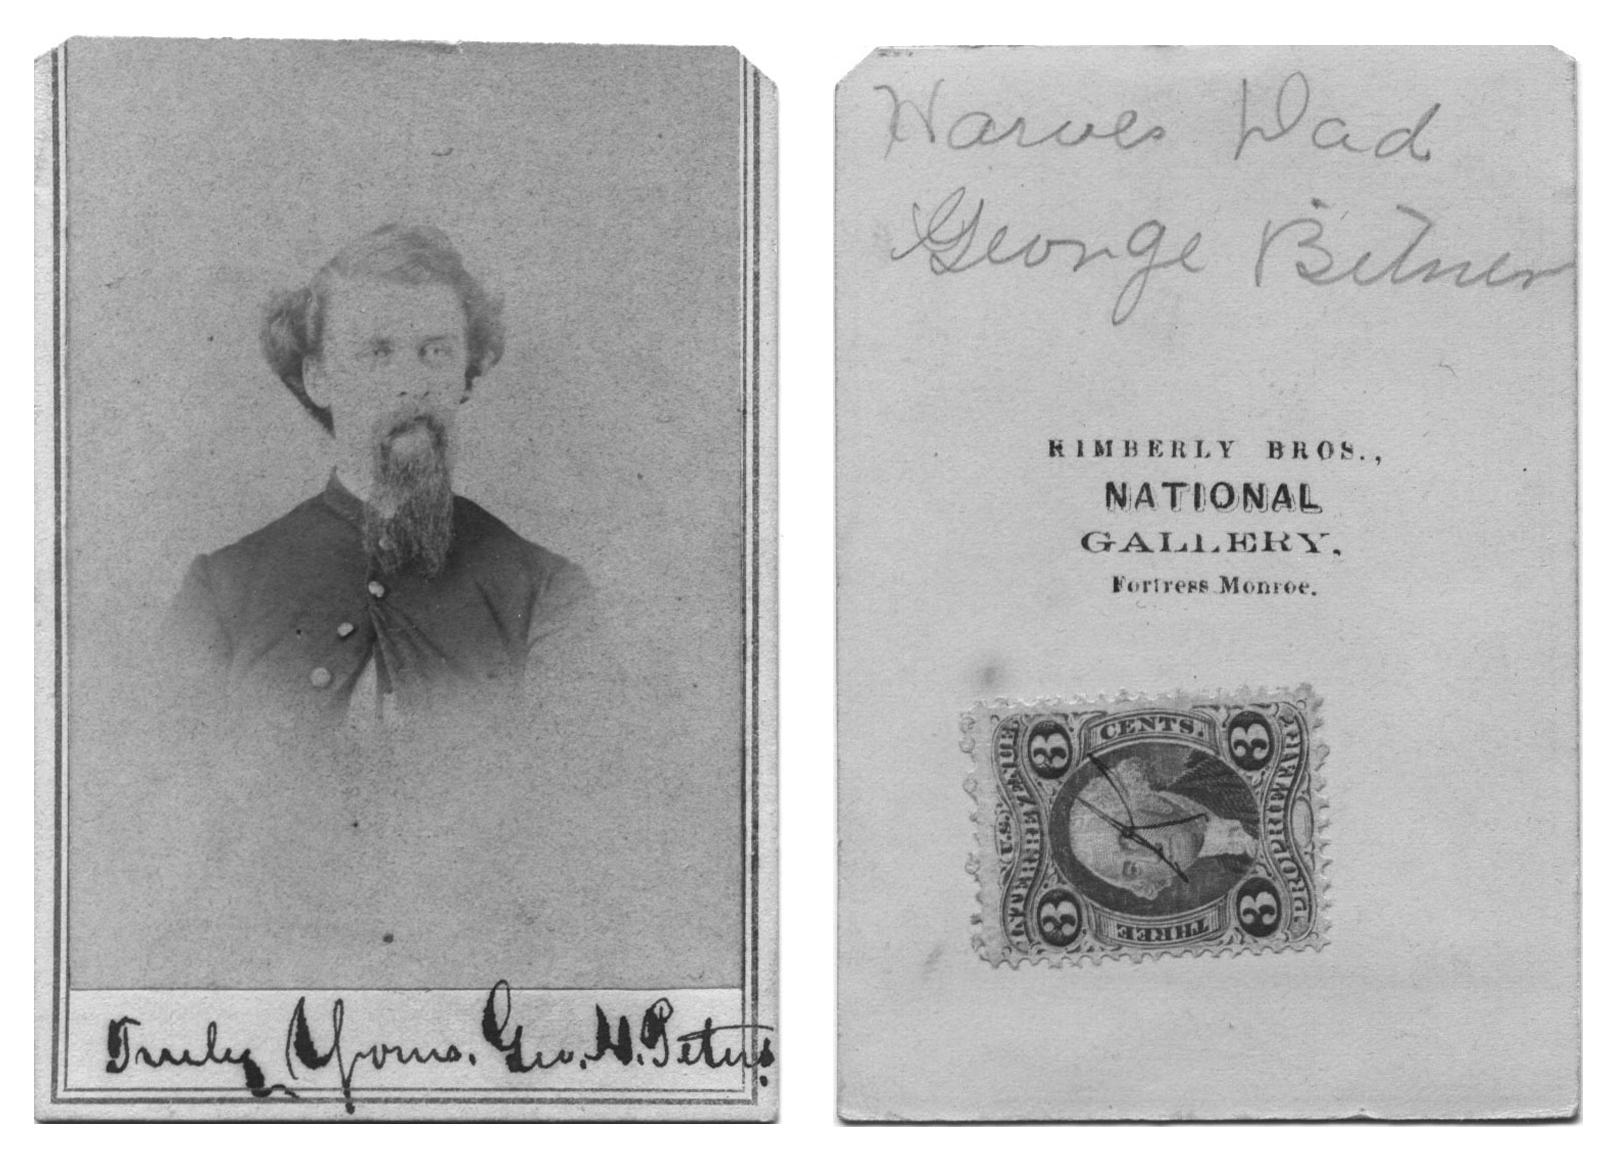 Truly Yours. Geo. H. Peters.
Harves Dad
George Bitner
KIMBERLY BROS.,
NATIONAL
GALLERY,
Fortress Monroe.
3 CENTS. 3
U.S. INTER. REVENUE
PROPRIETARY
3 THREE 3